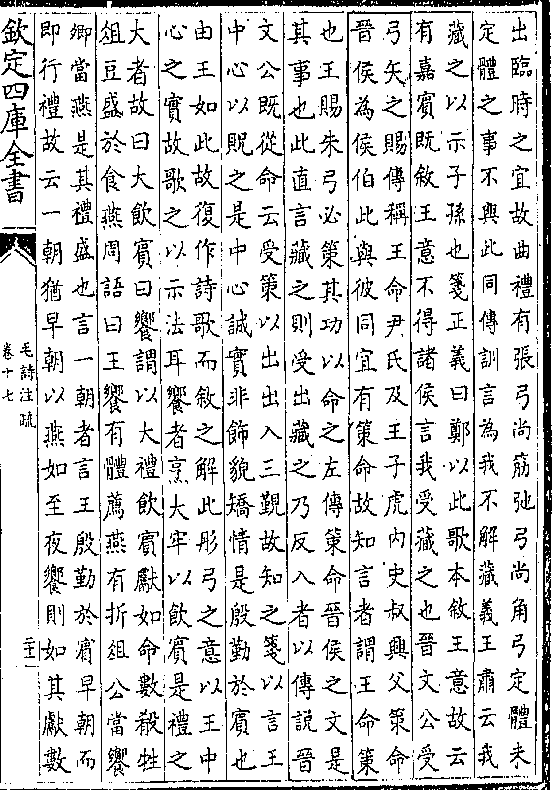 出臨時之宜故曲禮有張弓尚筋弛弓尚角弓定體未
定體之事不與此同傳訓言為我不解藏義王肅云我
藏之以示子孫也箋正義曰鄭以此歌本敘王意故云
有嘉賓既敘王意不得諸侯言我受藏之也晉文公受
弓矢之賜傳稱王命尹氏及王子虎内史叔興父策命
晉侯為侯伯此與彼同宜有策命故知言者謂王命策
也王賜朱弓必策其功以命之左傳策命晉侯之文是
其事也此直言藏之則受出藏之乃反入者以傳説晉
文公既從命云受策以出出入三覲故知之箋以言王
中心以貺之是中心誠實非飾貌矯情是殷勤於賓也
由王如此故復作詩歌而敘之解此彤弓之意以王中
心之實故歌之以示法耳饗者烹大牢以飲賓是禮之
大者故曰大飲賓曰饗謂以大禮飲賓獻如命數殺牲
俎豆盛於食燕周語曰王饗有體薦燕有折俎公當饗
卿當燕是其禮盛也言一朝者言王殷勤於賓早朝而
即行禮故云一朝猶早朝以燕如至夜饗則如其獻數
欽定四庫全書
毛詩注疏
卷十七
二十一